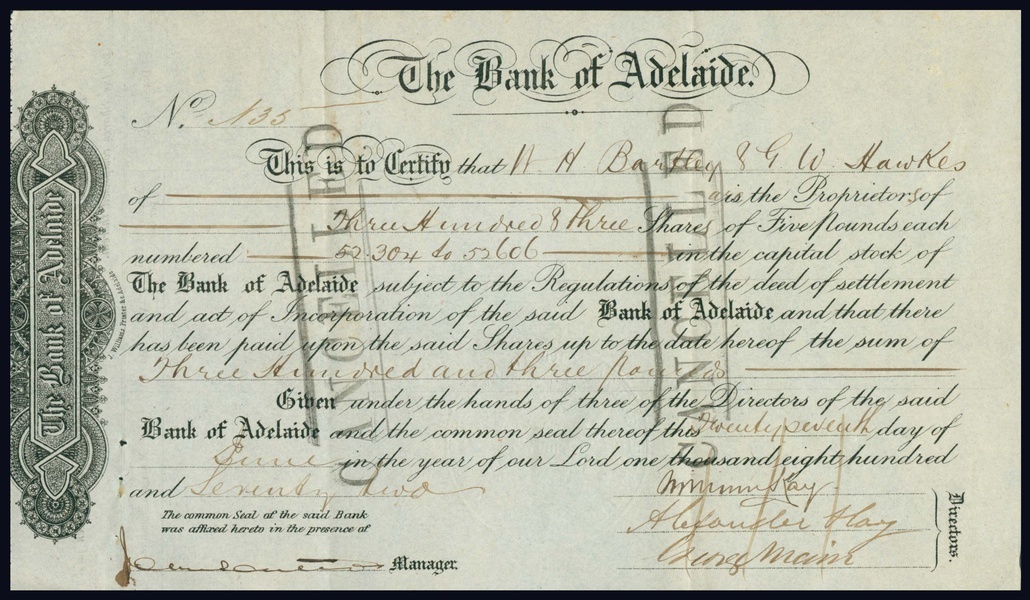 The Bank of Adelaide.
No. 1135
This is to Certify that W H Bartley & G W Hawkes
of are is the Proprietors of
Three Hundred & Three Shares of Five Pounds each
numbered 52.304 to 52606 in the capital stock of
The Bank of Adelaide subject to the Regulations of the deed of settlement
and act of Incorporation of the said Bank of Adelaide and that there
has been paid upon the said Shares up to the date hereof the sum of
Three Hundred and three Pounds
Given under the hands of three of the Directors of the said
Bank of Adelaide and the common seal thereof this Twenty seventh day of
June in the year of our Lord one thousand eight hundred
and Seventy two
The common Seal of the said Bank
was affixed hereto in the presence of
Manager.
Kay
Alexander Hay
George Main
Directors.
The Bank of Adelaide
Williams Printer &c Adelaide
CANCELLED
CANCELLED